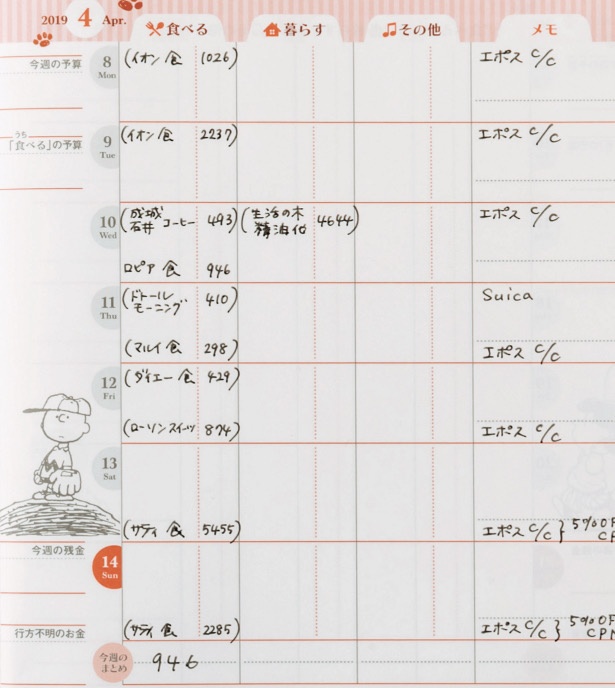 2019 4 Apr. 食べる 暮らす その他 メモ
今週の予算
8 Mon (イオン 食 1026) エポス C/C
うち
「食べる」の予算
9 Tue (イオン 食 2237) エポス C/C
10 Wed (成城石井 コーヒー 493) (生活の木 精油代 4644) エポス C/C
ロピア 食 946
11 Thu (ドトール モーニング 410) Suica
(マルイ 食 298) エポス C/C
12 Fri (ダイエー 食 429)
(ローソン スイーツ 874) エポス C/C
13 Sat
(サティ 食 5455) エポス C/C } 5%OF CP
今週の残金
14 Sun
行方不明のお金
(サティ 食 2285) エポス C/C } 5%OF CPN
今週のまとめ 946